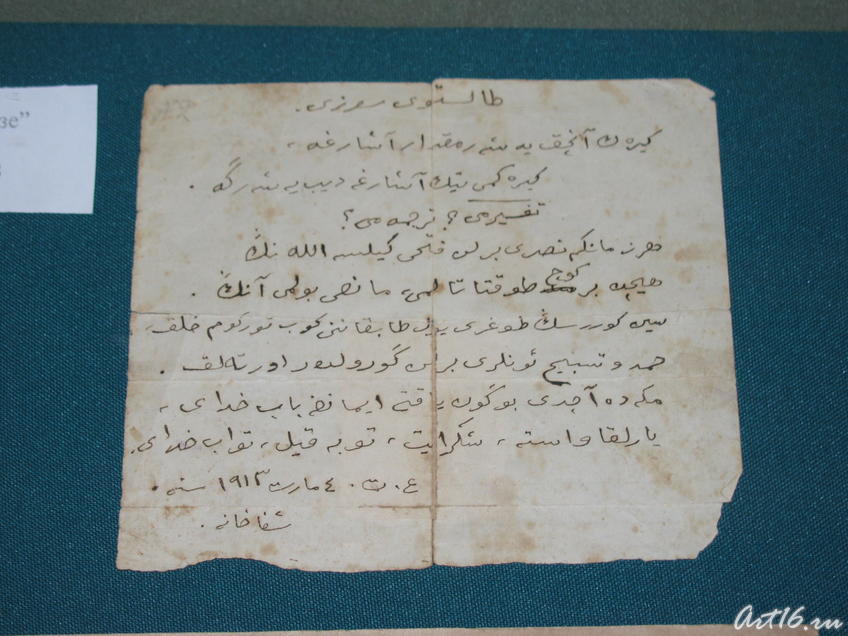 зе”
з
طالستوی سوزی.
كیره ك آنچق یه شه ر مقدار آشارغه ،
كیره كمی تیك آشارغه دیب یه شه رگه .
تفسیرمی؟ ترجمه می؟
هر زمانكم نصری برلن فتحی كیلسه الله نڭ
هیچده بر كوچ طوقتاتالمی، مانعی بولمی آنڭ .
سین كوررسڭ طوغری یول طابقاننی كوب توركوم خلق،
حمد و تسبیح ئونلری برلن گورولدر اورته لق .
مكه ده آچدی بوگون یاقتی ایمانغه باب خدای ،
یارلقاو استه ، شكر ایت ، توبه قیل ، تواب خدای.
ع. ت. ٤ مارت ١٩١٣ سنه .
شفاخانه .
Art16.ru